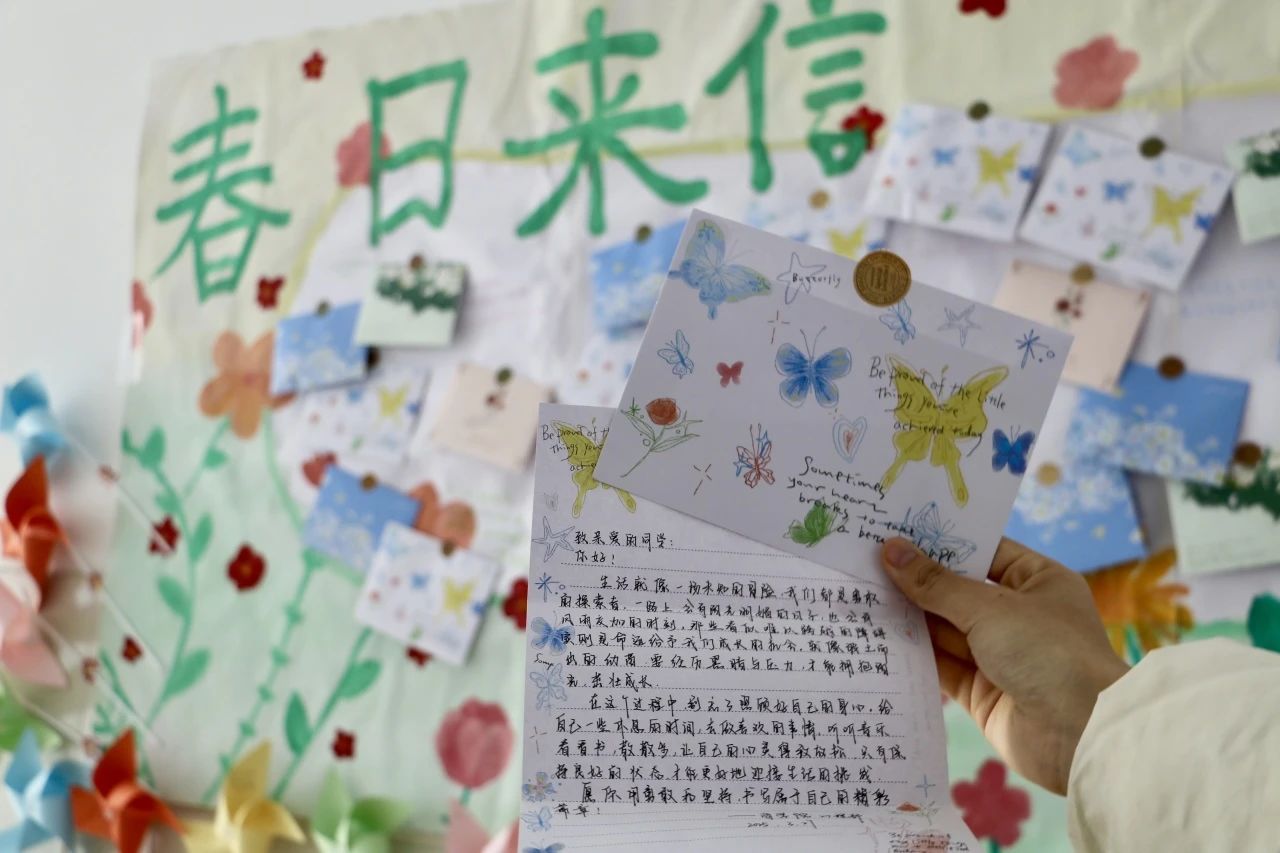 春日来信
Butterfly
Be proud of the Little
Things you've
achieved today
Sometimes
your heart
breaking to take
a
Be proud of th
Things you
achie
致亲爱的同学:
你好!
生活就像一场未知的冒险,我们都是勇敢
的探索者,一路上,会有阳光明媚的日子,也会有
风雨交加的时刻,那些看似难以跨越的障碍
实则是命运给予我们成长的机会,就像破土而
出的幼苗,要经历黑暗与压力,才能拥抱阳
光,茁壮成长.
在这个过程中,别忘了照顾好自己的身心,给
自己一些休息的时间,去做喜欢的事情,听听音乐
看看书,散散步,让自己的心灵得到放松,只有保
持良好的状态,才能更好地迎接生活的挑战.
愿你用勇敢和坚持,书写属于自己的精彩
篇章!
2025.3.